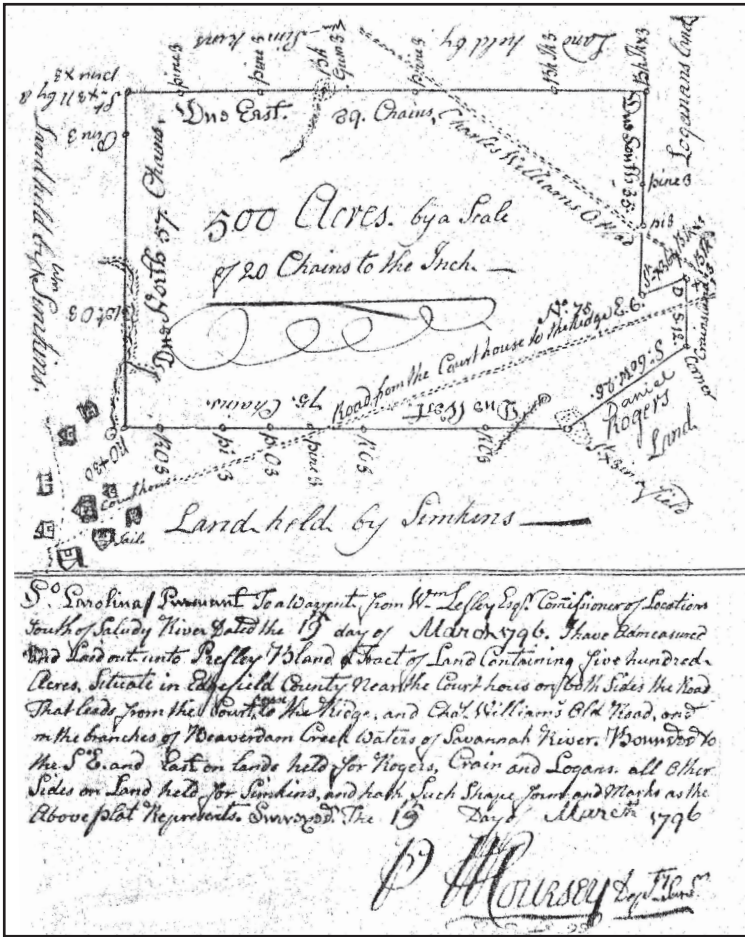 Land held by Wm Simkins
Pine 3
pine 3
Gum 3
pine 3
Pin 3
Due East. 89. Chains.
Charles Williams O. Road
Due South 35
Logans Land
pine 3
pi 3
Land held by Wm Simkins.
Due North 57 Chains.
500 Acres. by a Scale
of 20 Chains to the Inch.
Road from the Court house to the Ridge
No. 75 E. 9.
D. S. 12.
S. 60 W. 26.
Corner
Daniel
Rogers
Land
Due West
75. Chains.
RO 3
pi 3
p O 3
pine 3
RO 3
RO 3
Court house
Jail
Land held by Simkins
So. Carolina / Pursuant To a Warrant from Wm Lesley Esqr. Comissioner of Locations
South of Saludy River Dated the 19 day of March 1796. I have admeasured
and Laid out unto Presley Bland a Tract of Land Containing five hundred
Acres, Situate in Edgefield County Near the Court hous on both Sides the Road
That leads from the Court house to the Ridge, and Chas. William's Old Road, and
on the branches of Beaverdam Creek Waters of Savannah River. Bounded to
the S.E. and East on lands held for Rogers, Crain and Logans. all Other
Sides on Land held for Simkins, and hath Such Shape form and Marks as the
Above plat Represents. Survayd. The 19 Day of March 1796
P Wm Coursey Depty Survr